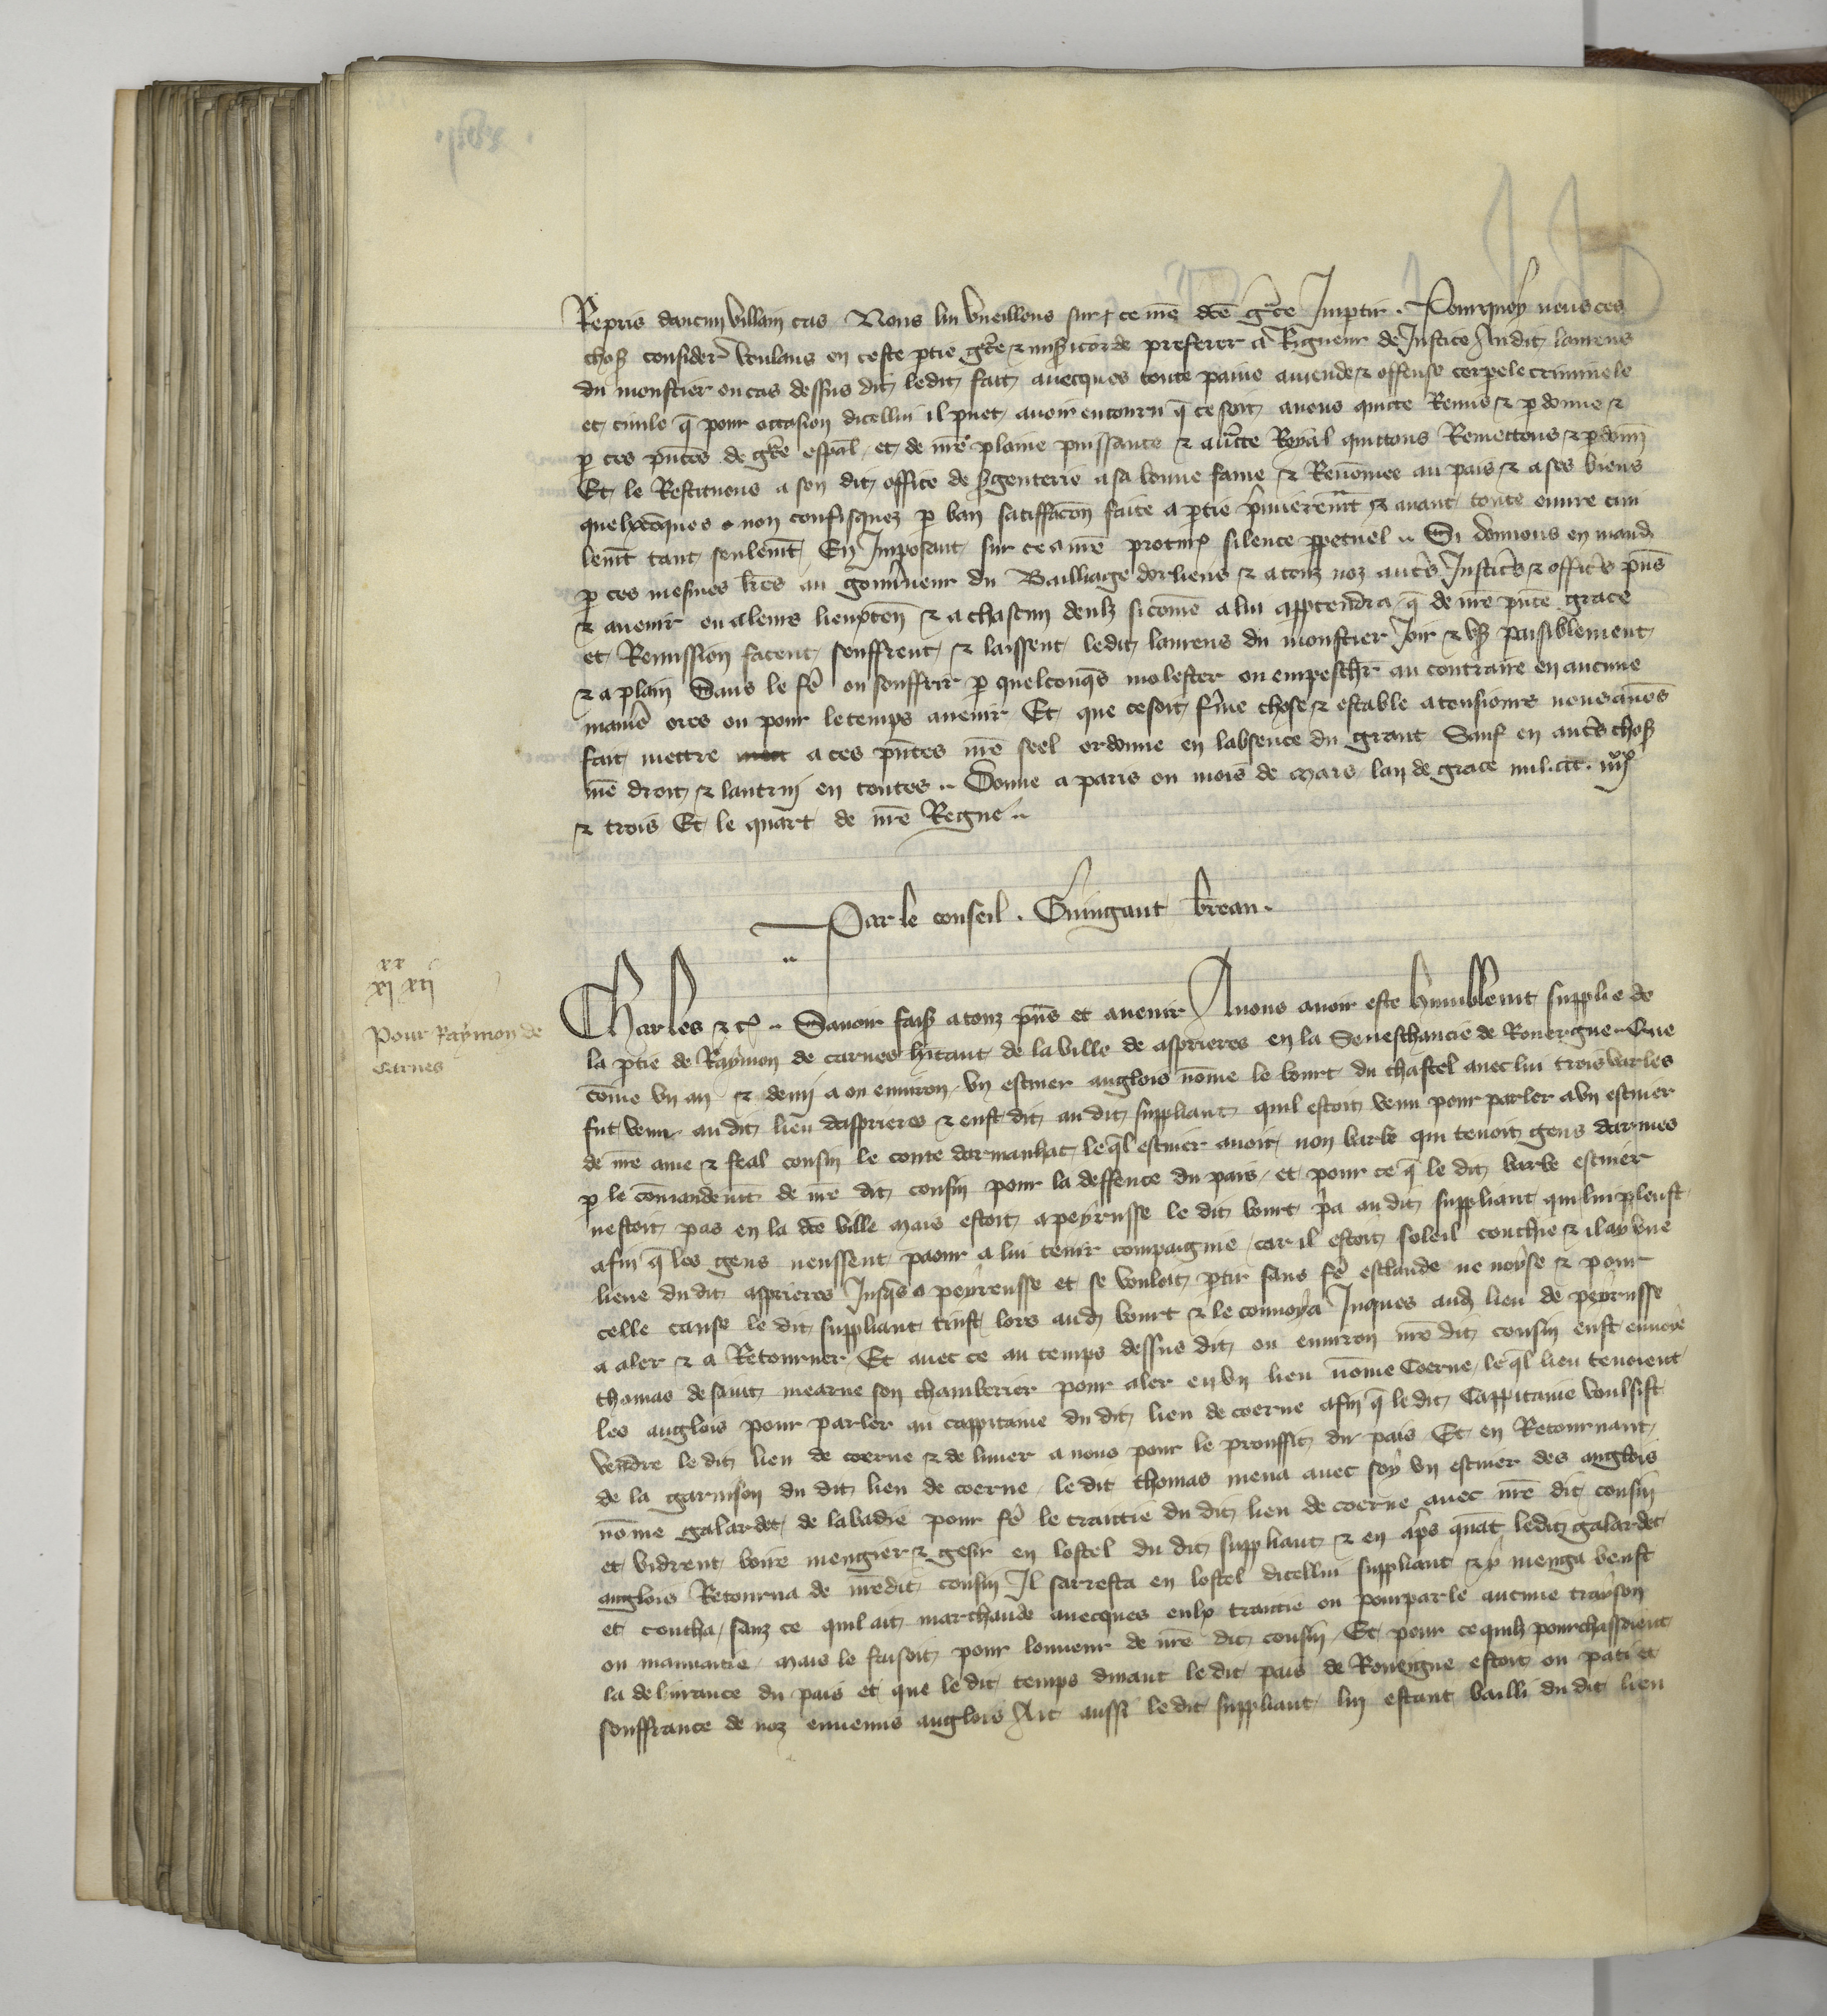 Repris daucun villain cas Nous lui vueillons sur ce nr̄e dc̄e gr̄ce Impartir . Pourquoy nous ces
choses consider̄ voulans en ceste ptie gr̄ce & mis̄icorde preferer a Rigueur de Justice Audit laurens
du monstier ou cas dessus dit ledit fait avecques toute paine amende & offense corpele criminele
et civile q̄ pour occasion dicellui il puet avoir encouru q̄ ce soit avons quicte Remis & pdonne &
p ces pn̄tes de gr̄ce esp̄al et de nr̄e plaine puissance & auct̄te Royal quictons Remettons & pdonn̄
Et le Restituons a son dit office de s̄genterie a sa bonne fame & Renōmee au pais & a ses biens
quelxcōques non confisquez p ban satiffac̄on faite a ptie p̄mierem̄t & avant toute euvre civi
lem̄t tant seulem̄t En Imposant sur ce a nr̄e procur̄ silence ppetuel .. Si donnons en mand̄
p ces mesmes lr̄es au gouv̄neur du Bailliage dorliens & a touz noz aut̄s Justic̄s & offic̄s pn̄s
& avenir ou a leurs lieuxten̄ & a chascun deulx si cōme a lui apptendra q̄ de nr̄e pn̄te grace
et Remission facent seuffrent & laissent ledit laurens du monstier Joir & us̄ paisiblement
& a plain Sans le fe ou souffrir p quelconq̄s molester ou empesch̄r au contraire en aucune
manie ores ou pour le temps avenir Et que ce soit fme chose & estable a tousiours nous avōs
fait mettre a ces pn̄tes nr̄e seel ordonne en labsence du grant Sauf en aut̄s choses
nr̄e droit & lautruy en toutes .. Donne a paris ou mois de mars lan de grace mil .ccc. iiii xx
& trois Et le quart de nr̄e Regne ..
Par le conseil . Guingant br̄eau .
xx
xi xii
Pour Raymon de
Carnes
Charles &c .. Savoir faiss̄ a touz pn̄s et avenir A nous avoir este humblem̄t supplie de
la ptie de Raymon de carnes hītant de la ville de asprieres en la Seneschaucie de Rouergue Que
cōme un an & demi a ou environ un escuier anglois nōme le bourt du chastel avec lui trois varles
fut venu au dit lieu dasprieres & eust dit au dit suppliant quil estoit venu pour parler a un escuier
de nr̄e ame & feal cousin le conte darmanhac leq̄l escuier avoit non barbe qui tenoit gens darmes
p le cōmandem̄t de nr̄e dit cousin pour la deffence du pais et pour ce q̄ le dit barbe escuier
nestoit pas en la dc̄e ville mais estoit a peyrusse le dit bourt pa au dit suppliant qui lui pleust
afin q̄ les gens neussent paour a lui tenir compaignie car il estoit soleil couchie & il ay une
lieue dudit asprieres Jusq̄s a peyreusse et se vouloit ptir sans fe esclande ne noyse & pour
celle cause le dit suppliant tinst lors aud̄ bourt & le convoya Juques aud̄ lieu de peyrusse
a aler & a Retourner Et avec ce au temps dessus dit ou environ nr̄e dit cousin eust envoye
thomas de saint mearne son chamberier pour aler en un lieu nōme Coerne le q̄l lieu tenoient
les anglois pour parler au cappitaine du dit lieu de coerne afin q̄ le dit Cappitaine voulsist
vendre le dit lieu de coerne & de livrer a nous pour le prouffit du pais Et en Retournant
de la garnison du dit lieu de coerne le dit thomas mena avec soy un escuier des anglois
nōme galardet de labadie pour fe le traictie du dit lieu de coerne avec nr̄e dit cousin
et vidrent boire mengier & gesir en lostel du dit suppliant & en ap̄s quāt ledit galardet
anglois Retourna de nr̄edit cousin Il sarresta en lostel dicellui suppliant & y menga beust
et coucha sanz ce quil ait marchande avecques eulx traictie ou pourparle aucune trayson
ou mauvaitie mais le faisoit pour lonneur de nr̄e dit cousin Et pour ce quilz pourchassoient
la delivrance du pais et que le dit temps durant le dit pais de Rouergue estoit en pati et
souffrance de noz ennemis anglois Ait aussi le dit suppliant lui estant bailli du dit lieu